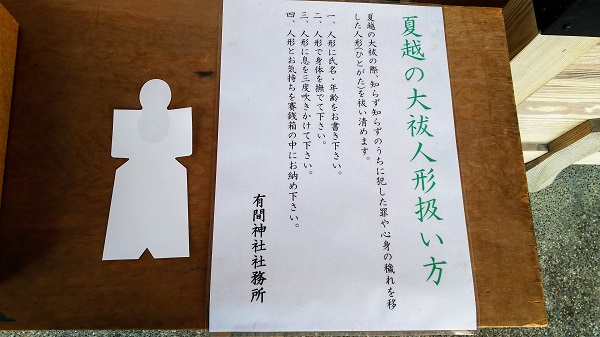 夏越の大祓人形扱い方
夏越の大祓の際、知らず知らずのうちに犯した罪や心身の穢れを移
した人形(ひとがた)を祓い清めます。
一、人形に氏名・年齢をお書き下さい。
二、人形で身体を撫でて下さい。
三、人形に息を三度吹きかけて下さい。
四、人形とお気持ちを賽銭箱の中にお納め下さい。
有間神社社務所